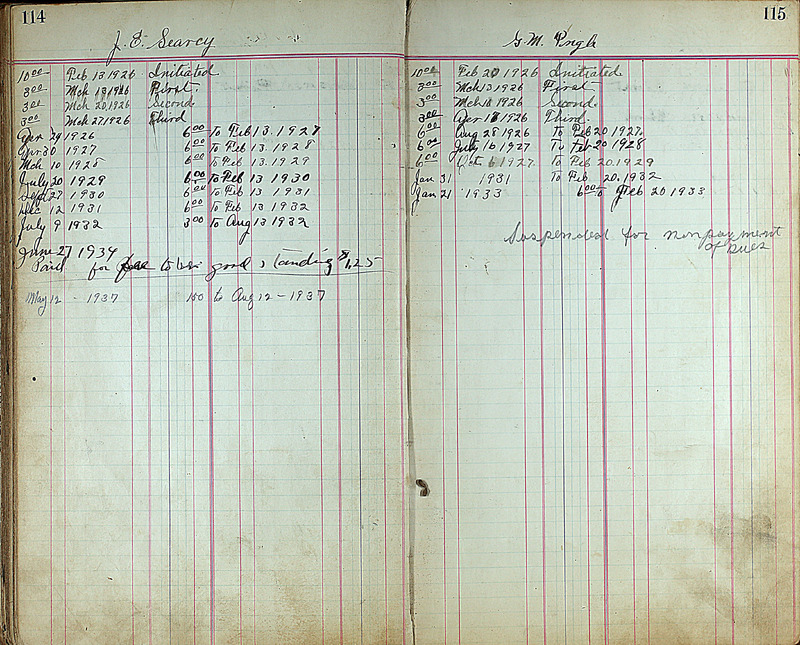 114
J. E. Searcy
10 00 Feb 13 1926 Initiated
3 00 Mch 13 1926 First.
3 00 Mch 20, 1926 Second
3 00 Mch 27, 1926 Third
Apr 29 1926 6 00 To Feb 13. 1927
Apr 30 1927 6 00 To Feb 13. 1928
Mch 10 1928 6 00 To Feb 13. 1929
July 20 1929 6 00 To Feb 13 1930
Sept 27 1930 6 00 To Feb 13 1931
Dec 12 1931 6 00 To Feb 13 1932
July 9 1932 3 00 To Aug 13 1932
June 27 1934
Paid for to be in good standing $1.25
May 12 - 1937 1 50 to Aug 12 - 1937
115
G. M. Pngle
10 00 Feb 20 1926 Initiated
3 00 Mch 13 1926 First
3 00 Mch 1926 Second
3 00 Apr 1926 Third.
6 00 Aug 28 1926 To Feb 20 1927.
6 00 July 16 1927 To Feb 20 1928
6 00 Oct 1927. To Feb 20. 1929
Jan 31 1931 To Feb 20. 1932
Jan 21 1933 6 00 Feb 20 1933
Suspended for nonpayment
of Dues